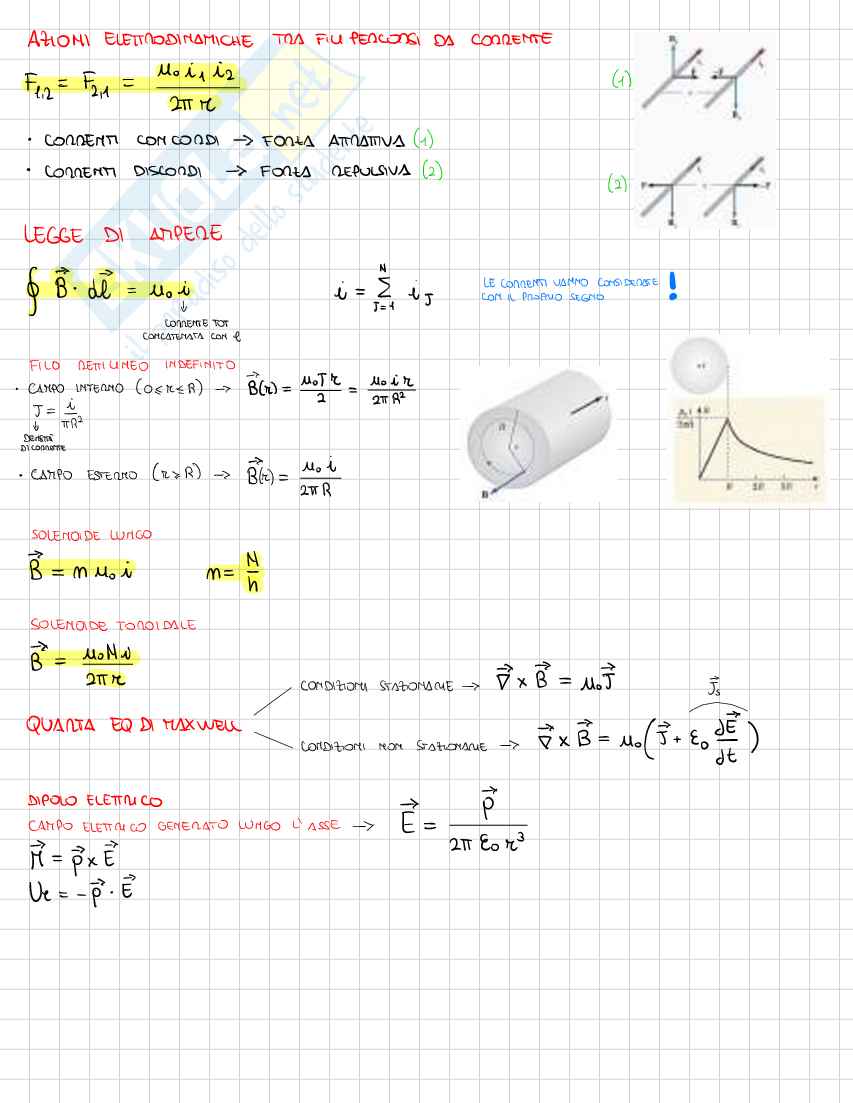 AZIONI ELETTRODINAMICHE TRA FILI PERCORSI DA CORRENTE
F₁,₂ = F₂,₁ = μ₀ i₁ i₂ / 2π r
(1)
• CORRENTI CONCORDI → FORZA ATTRATTIVA (1)
• CORRENTI DISCORDI → FORZA REPULSIVA (2)
(2)
SKUOLA.net
il paradiso dello studente
LEGGE DI AMPERE
∮ B⃗ · dl⃗ = μ₀ i
i = Σ_{J=1}^{N} i_J
LE CORRENTI VANNO CONSIDERATE
CON IL PROPRIO SEGNO !
↓
CORRENTE TOT
CONCATENATA CON ℓ
FILO RETTILINEO INDEFINITO
• CAMPO INTERNO (0 ≤ r ≤ R) → B⃗(r) = μ₀ J r / 2 = μ₀ i r / 2π R²
J = i / πR²
↓
DENSITÀ
DI CORRENTE
• CAMPO ESTERNO (r ≥ R) → B⃗(r) = μ₀ i / 2π R
SOLENOIDE LUNGO
B⃗ = n μ₀ i
n = N / h
SOLENOIDE TOROIDALE
B⃗ = μ₀ N i / 2π r
CONDIZIONI STAZIONARIE → ∇⃗ × B⃗ = μ₀ J⃗
J⃗s
QUARTA EQ DI MAXWELL
CONDIZIONI NON STAZIONARIE → ∇⃗ × B⃗ = μ₀ ( J⃗ + ε₀ dE⃗ / dt )
DIPOLO ELETTRICO
CAMPO ELETTRICO GENERATO LUNGO L'ASSE → E⃗ = p⃗ / 2π ε₀ r³
M⃗ = p⃗ × E⃗
Ue = - p⃗ · E⃗